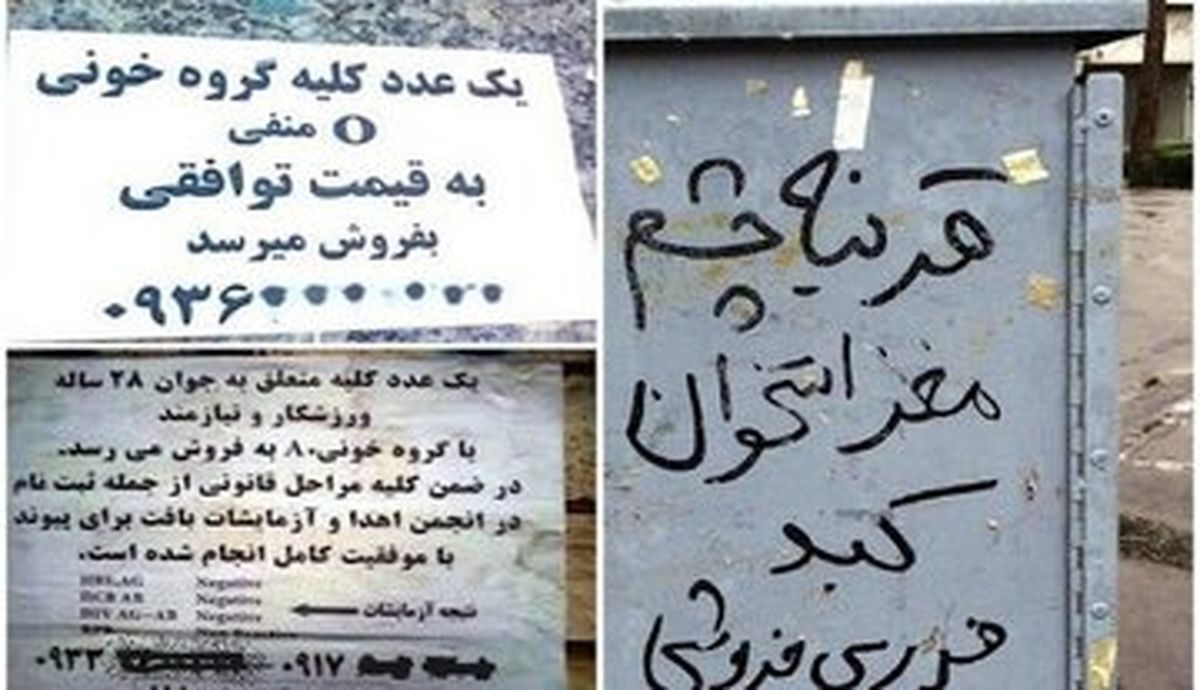 یک عدد کلیه گروه خونی
O منفی
به قیمت توافقی
بفروش میرسد
۰۹۳۶
یک عدد کلیه متعلق به جوان ۲۸ ساله
ورزشکار و نیازمند
با گروه خونی.۸ به فروش می رسد.
در ضمن کلیه مراحل قانونی از جمله ثبت نام
در انجمن اهدا و آزمایشات بافت برای پیوند
با موفقیت کامل انجام شده است.
HBS.AG Negative
HCB AB Negative
HIV AG-AB Negative
نتیجه آزمایشات
۰۹۳۳ ۰۹۱۷
قرنیه چشم
مغز استخوان
کبد
فوری فروشی